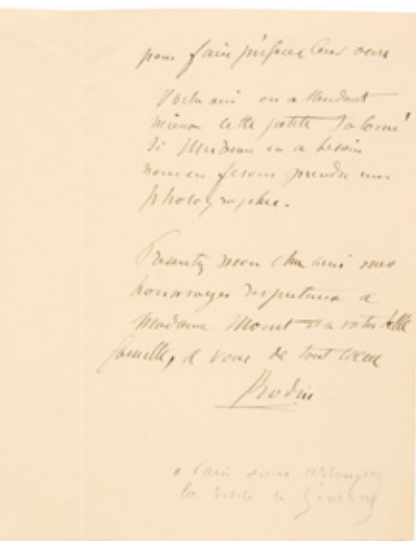 pour faire
Voila ami en attendant
mieux cette petite Salomé
Si Mirbeau en a besoin
nous en ferons prendre une
photographie.
Présentez mon cher ami mes
hommages respectueux à
Madame Monet et a votre belle
famille, à vous de tout cœur
Rodin
la de Giverny